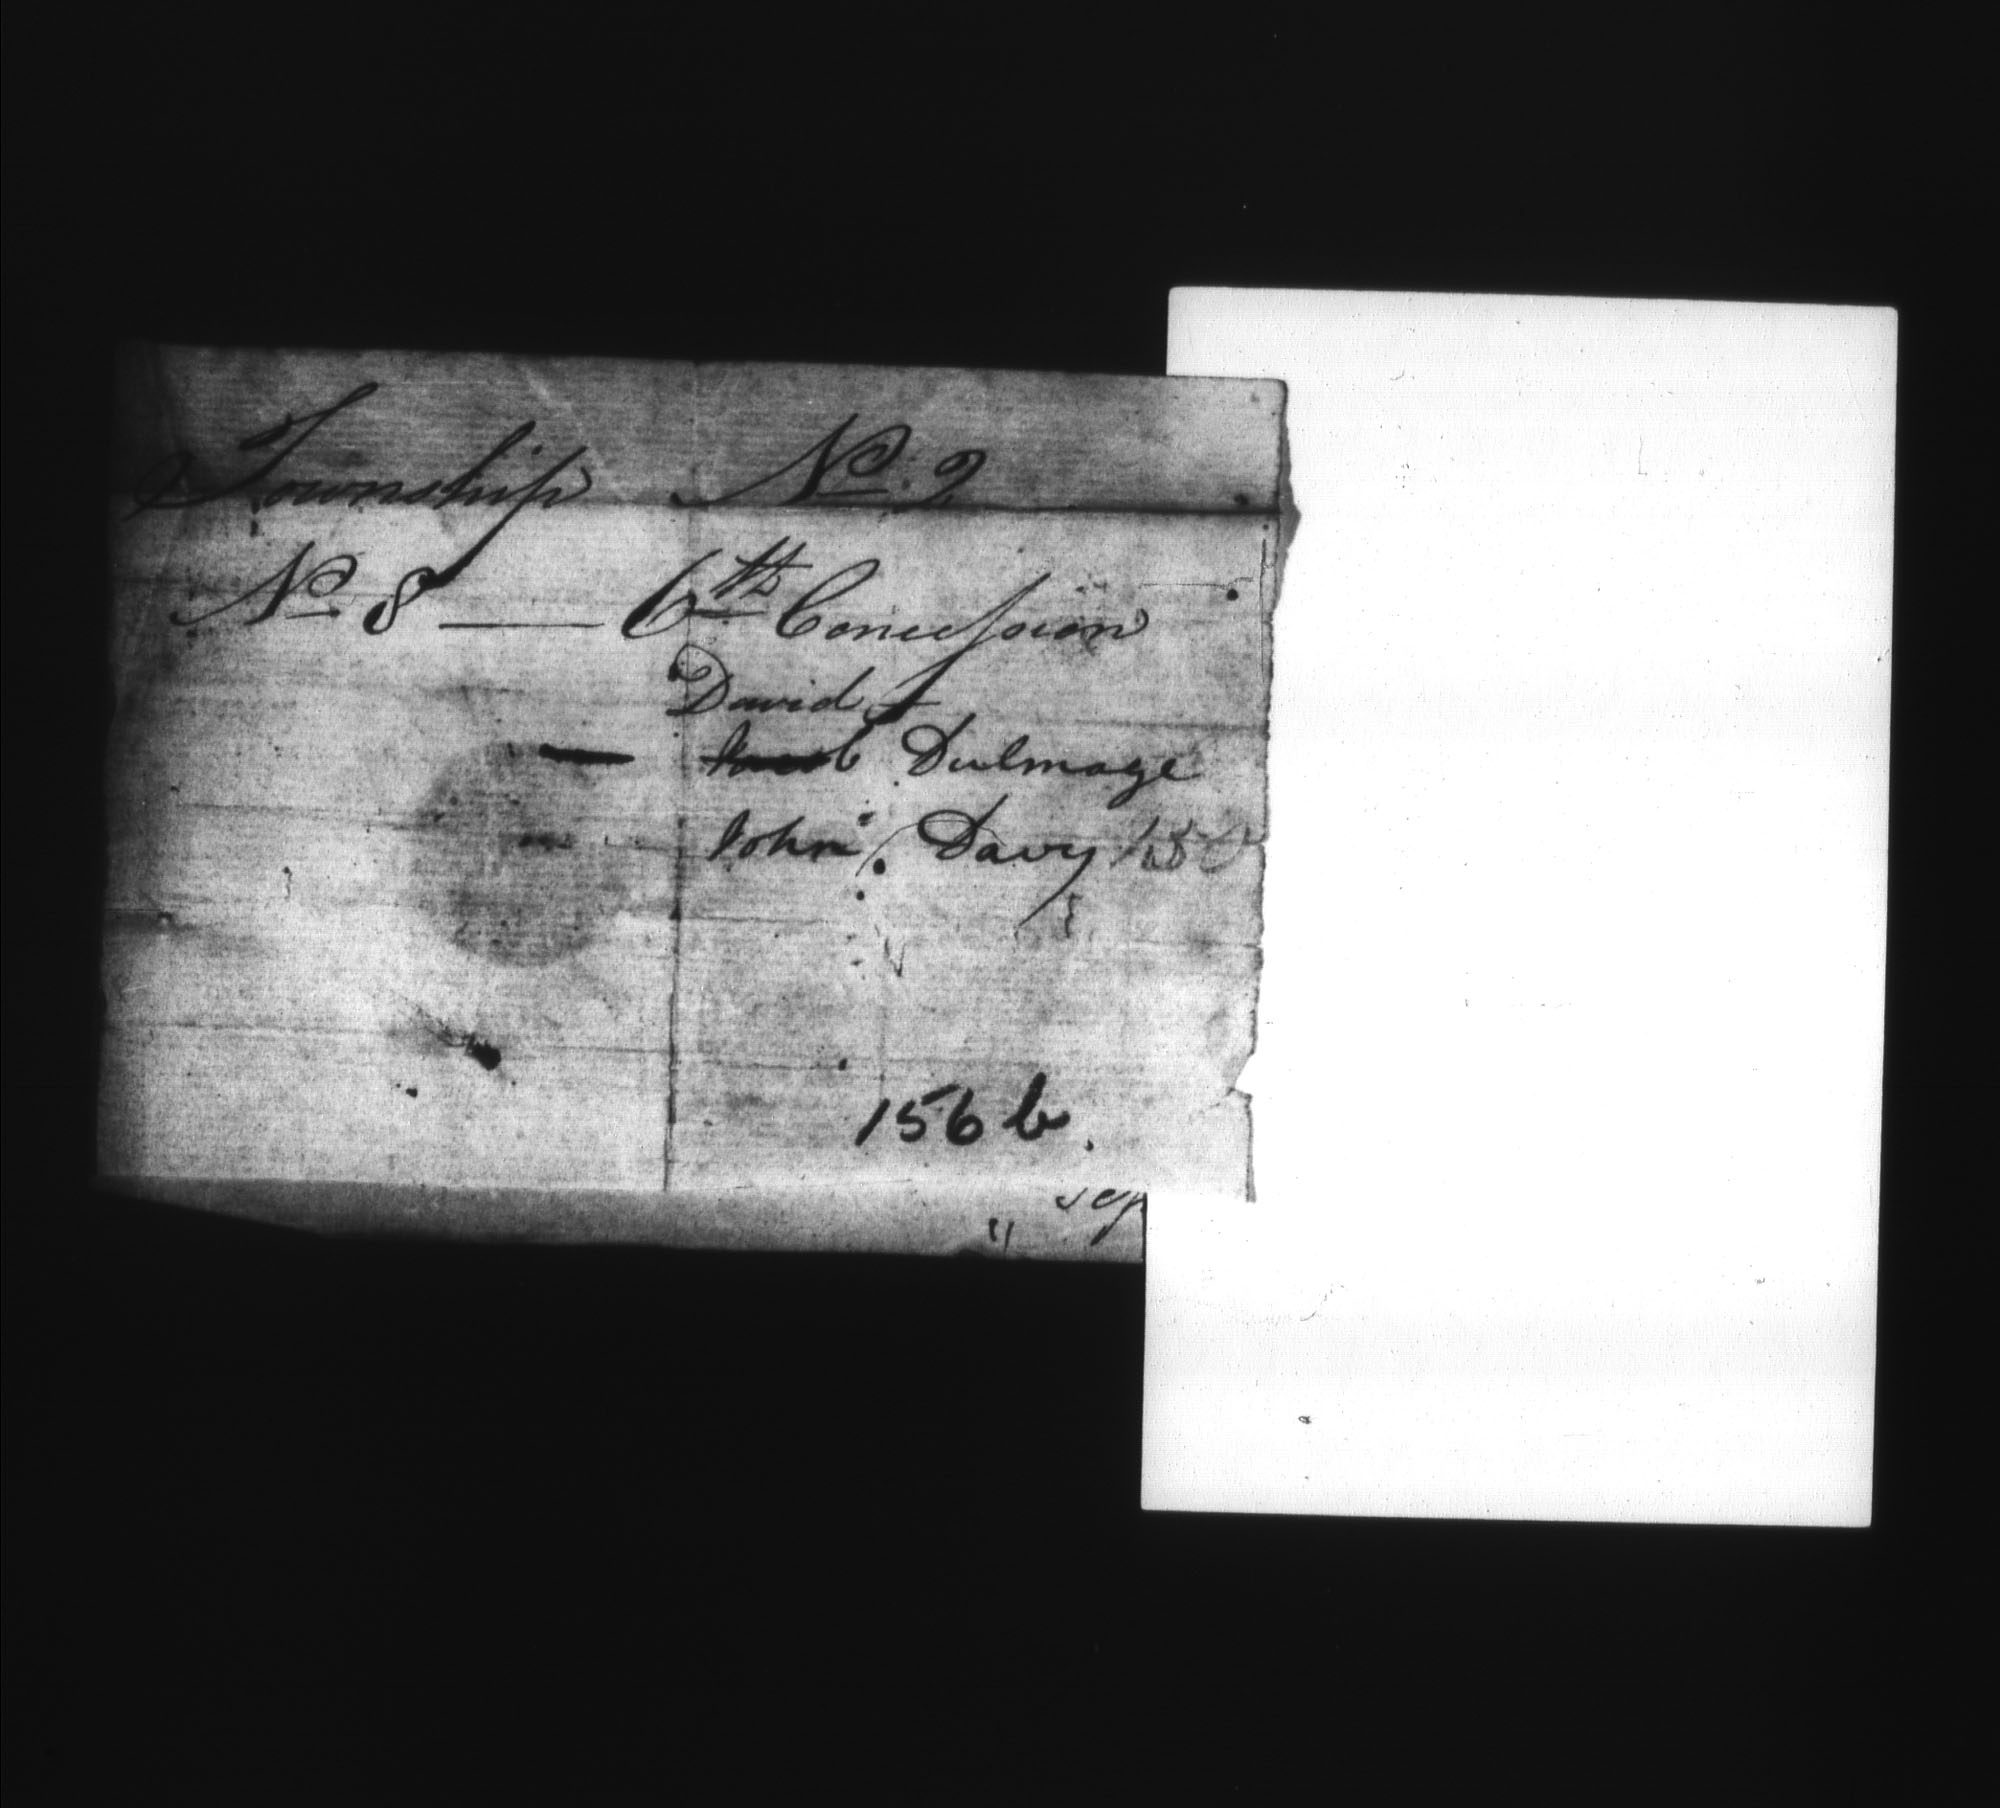 Township No. 2
No. 8 — 6th Concession
David
Jacob Dulmage
John Davy 150
156 b.